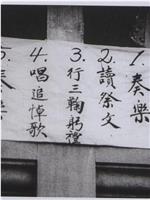 1.奏樂
2.讀祭文
3.行三鞠躬禮
4.唱追悼歌
5.奏樂